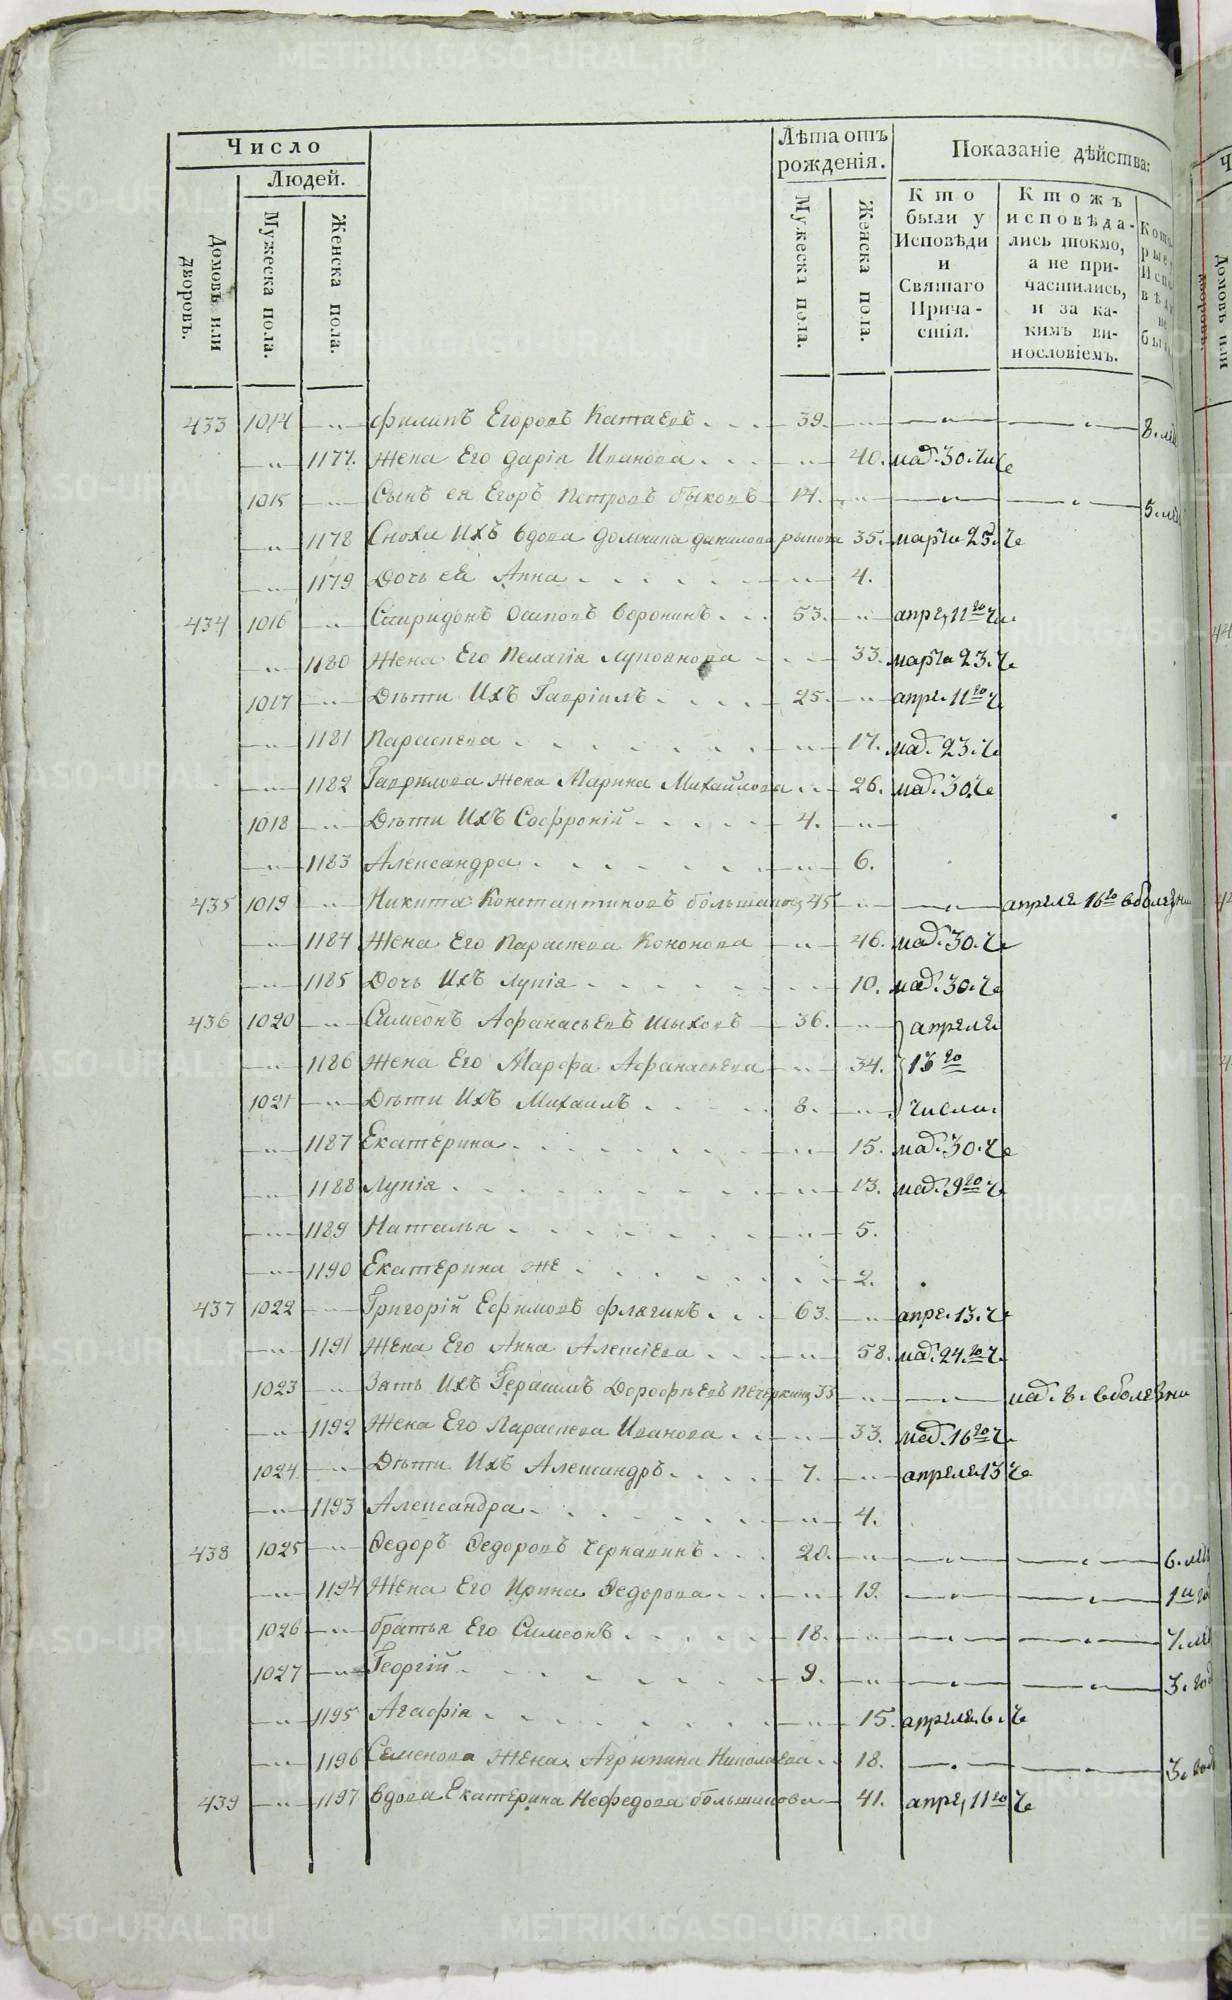 Число
Людей.
Домовъ или дворовъ.
Мужеска пола.
Женска пола.
Лѣта отъ рожденія.
Мужеска пола.
Женска пола.
Показаніе дѣйства:
Кто были у Исповѣди и Святаго Причастія.
Ктожъ исповѣдались токмо, а не причастились, и за какимъ винословіемъ.
433 1014 — „ — Филипъ Егоровъ Катаевъ 39. — „ — — „ — — „ —
— „ — 1177. Жена Его Дарія Иванова — „ — 40. мар. 30. чи
1015 — „ — Сынъ ея Егоръ Петровъ Быковъ 14. — „ — — „ — — „ —
— „ — 1178 Сноха Ихъ вдова Домнина Данилова 35. марта 25. ч
— „ — 1179 Дочь ея Анна — „ — 4.
434 1016 — „ — Спиридонъ Осиповъ Воронинъ 53. — „ — апре, 11го чи.
— „ — 1180 Жена Его Пелагія Лупоянова 33. марта 23. ч
1017 — „ — Дѣти Ихъ Гавріилъ 25. — „ — апре. 11го ч
— „ — 1181 Параскева — „ — 17. мар. 23. ч
— „ — 1182 Гаврилова жена Марина Михайлова — „ — 26. мар. 30. ч
1018 — „ — Дѣти Ихъ Софроній 4. — „ —
— „ — 1183 Александра — „ — 6.
435 1019 — „ — Никита Константиновъ 45 — „ — — „ — апреля 16го в болезни
— „ — 1184 Жена Его Параскева Кононова — „ — 46. мар. 30. ч
— „ — 1185 Дочь Ихъ Лупія 10. мар. 30. ч
436 1020 — „ — Симеонъ Афанасьевъ Шыховъ 36. — „ — апреля
— „ — 1186 Жена Его Марфа Афанасьева — „ — 34. 13го
1021 — „ — Дѣти Ихъ Михаилъ 8. — „ — числа.
— „ — 1187 Екатерина — „ — 15. мар. 30. ч
— „ — 1188 Лупія — „ — 13. мар. 9го ч
— „ — 1189 Наталья — „ — 5.
— „ — 1190 Екатерина же 2.
437 1022 — „ — Григорій Ефимовъ Флягинъ 63. — „ — апре. 13. ч
— „ — 1191 Жена Его Анна Алексіева — „ — 58. мар. 24го ч.
1023 — „ — Зять Ихъ Герасимъ Дорофеевъ Печеркинъ 33 — „ — — „ — мар. в болезни
— „ — 1192 Жена Его Параскева Иванова — „ — 33. мар. 16го ч.
1024 — „ — Дѣти Ихъ Александръ 7. — „ — апреля 13 ч
— „ — 1193 Александра — „ — 4.
438 1025 — „ — Федоръ Федоровъ Чернавинъ 20. — „ — — „ — — „ —
— „ — 1194 Жена Его Ирина Федорова — „ — 19. — „ — — „ —
1026 — „ — братья Его Симеонъ 18. — „ — — „ — — „ —
1027 — „ — Георгій 9. — „ — — „ — — „ — 3. год
— „ — 1195 Агафія — „ — 15. апреля 6. ч
— „ — 1196 Семенова жена Агрипина Николаева 18. — „ — — „ — 3. год
439 — „ — 1197 вдова Екатерина Нефедова Большакова 41. апре, 11го ч
METRIKI.GASO-URAL.RU